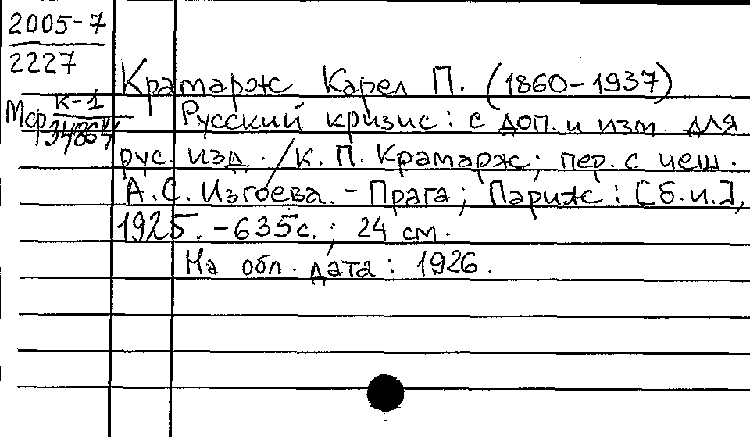 2005-7
2227
Крамарж Карел П. (1860-1937)
К-1
Мор.
Русский кризис: с доп. и изм для
рус. изд. / К. П. Крамарж; пер. с чеш.
А.С. Изгоева. - Прага; Париж: [б.и.],
1925. - 635 с.; 24 см.
На обл. дата: 1926.